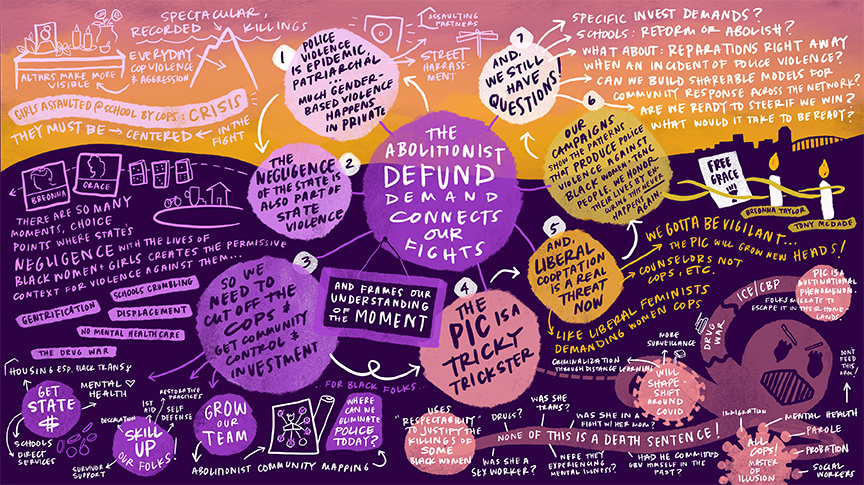 SPECTACULAR,
RECORDED KILLINGS
EVERYDAY
COP VIOLENCE
& AGGRESSION
ALTARS MAKE MORE
VISIBLE
GIRLS ASSAULTED @ SCHOOL BY COPS: CRISIS
THEY MUST BE → CENTERED ← IN THE
FIGHT
1
POLICE
VIOLENCE
IS EPIDEMIC,
PATRIARCHAL
MUCH GENDER-
BASED VIOLENCE
HAPPENS
IN PRIVATE
ASSAULTING
PARTNERS
STREET
HARRASS-
MENT
7
AND,
WE STILL
HAVE
QUESTIONS!
SPECIFIC INVEST DEMANDS?
SCHOOLS: REFORM OR ABOLISH?
WHAT ABOUT: REPARATIONS RIGHT AWAY
WHEN AN INCIDENT OF POLICE VIOLENCE?
CAN WE BUILD SHAREABLE MODELS FOR
COMMUNITY RESPONSE ACROSS THE NETWORK?
ARE WE READY TO STEER IF WE WIN?
WHAT WOULD IT TAKE TO BE READY?
THE
ABOLITIONIST
DEFUND
DEMAND
CONNECTS
OUR
FIGHTS
AND FRAMES OUR
UNDERSTANDING
OF THE MOMENT
2
THE
NEGLIGENCE
OF THE STATE IS
ALSO PART OF
STATE
VIOLENCE
BREONNA
GRACE
THERE ARE SO MANY
MOMENTS, CHOICE
POINTS WHERE STATE'S
NEGLIGENCE WITH THE LIVES OF
BLACK WOMEN & GIRLS CREATES THE PERMISSIVE
CONTEXT FOR VIOLENCE AGAINST THEM...
SCHOOLS CRUMBLING
GENTRIFICATION
DISPLACEMENT
NO MENTAL HEALTHCARE
THE DRUG WAR
6
OUR
CAMPAIGNS
SHOW THE PATTERNS
THAT PRODUCE POLICE
VIOLENCE AGAINST
BLACK WOMEN & TGNC
PEOPLE. WE HONOR
THEIR LIVES BY EN-
SURING THIS NEVER
HAPPENS
AGAIN
FREE
GRACE
BREONNA TAYLOR
TONY MCDADE
5
AND,
LIBERAL
COOPTATION
IS A REAL
THREAT
NOW
WE GOTTA BE VIGILANT...
THE PIC WILL GROW NEW HEADS!
COUNSELORS NOT
COPS, ETC.
LIKE LIBERAL FEMINISTS
DEMANDING WOMEN COPS
3
SO WE
NEED TO
CUT OFF THE
COPS &
GET COMMUNITY
CONTROL &
INVESTMENT
.. FOR BLACK FOLKS..
HOUSING ESP. BLACK TRANS
MENTAL
HEALTH
GET
STATE
$
SCHOOLS
DIRECT
SERVICES
RESTORATIVE
PRACTICES
1ST
AID
SELF
DEFENSE
SKILL
UP
OUR FOLKS!
SURVIVOR
SUPPORT
GROW
OUR
TEAM
ABOLITIONIST COMMUNITY MAPPING
WHERE
CAN WE
ELIMINATE
POLICE
TODAY?
4
THE
PIC IS A
TRICKY
TRICKSTER
USES
RESPECTABILITY
TO JUSTIFY THE
KILLINGS OF
SOME
BLACK WOMEN
DRUGS?
WAS SHE
TRANS?
WAS SHE IN A
FIGHT W/ HER MOM?
NONE OF THIS IS A DEATH SENTENCE!
WAS SHE A
SEX WORKER?
WERE THEY
EXPERIENCING
MENTAL ILLNESS?
HAD HE COMMITTED
GBV HIMSELF IN THE
PAST?
CRIMINALIZATION
THROUGH DISTANCE LEARNING
MORE
SURVEILLANCE
WILL
SHAPE-
SHIFT
AROUND
COVID
DRUG
WAR
ICE/CBP
FOLKS MIGRATE TO
ESCAPE IT IN THEIR HOME
LANDS
PIC IS A
MULTINATIONAL
PHENOMENON.
DON'T
FEED
THIS
ARM!
IMMIGRATION
MENTAL HEALTH
PAROLE
PROBATION
SOCIAL
WORKERS
ALL
COPS!
MASTER
OF
ILLUSION